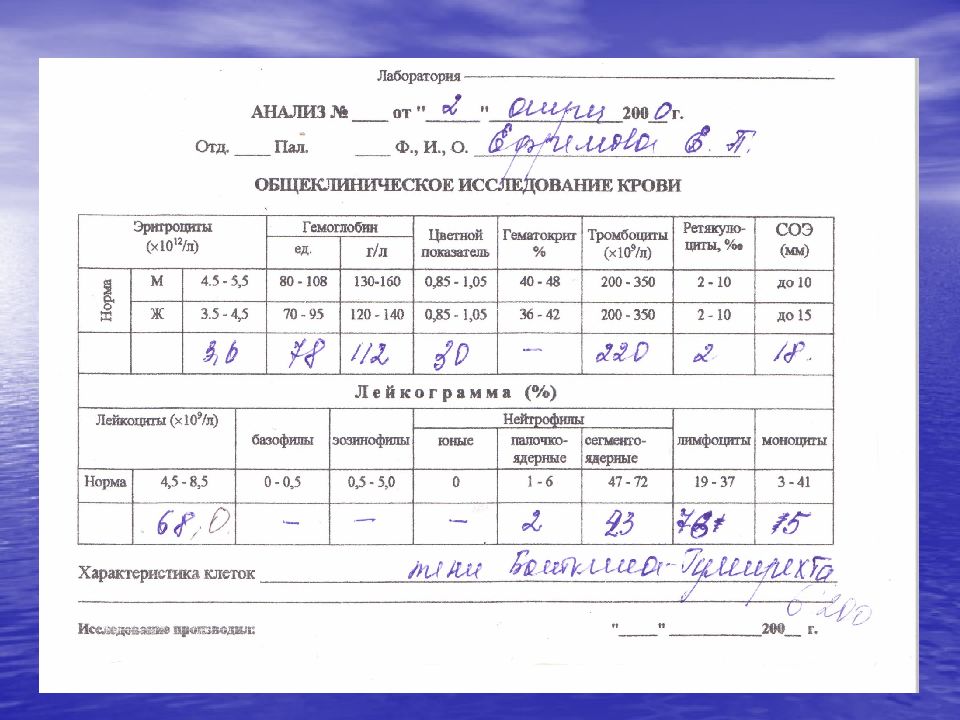 Лаборатория
АНАЛИЗ № ____ от "2" апреля 2000 г.
Отд. ____ Пал. ____ Ф., И., О. Ефремова Е. П.
ОБЩЕКЛИНИЧЕСКОЕ ИССЛЕДОВАНИЕ КРОВИ
Эритроциты (×10¹²/л) Гемоглобин Цветной показатель Гематокрит % Тромбоциты (×10⁹/л) Ретякуло-циты, ‰ СОЭ (мм)
ед. г/л
Норма М 4.5 - 5,5 80 - 108 130-160 0,85 - 1,05 40 - 48 200 - 350 2 - 10 до 10
Ж 3.5 - 4,5 70 - 95 120 - 140 0,85 - 1,05 36 - 42 200 - 350 2 - 10 до 15
3,6 78 112 30 — 220 2 18.
Лейкограмма (%)
Лейкоциты (×10⁹/л) базофилы эозинофилы Нейтрофилы лимфоциты моноциты
юные палочко-ядерные сегменто-ядерные
Норма 4,5 - 8,5 0 - 0,5 0,5 - 5,0 0 1 - 6 47 - 72 19 - 37 3 - 41
68,0 — — — 2 15
Характеристика клеток тени Боткина-Гумпрехта
Исследование производил: "____" ____________200__ г.